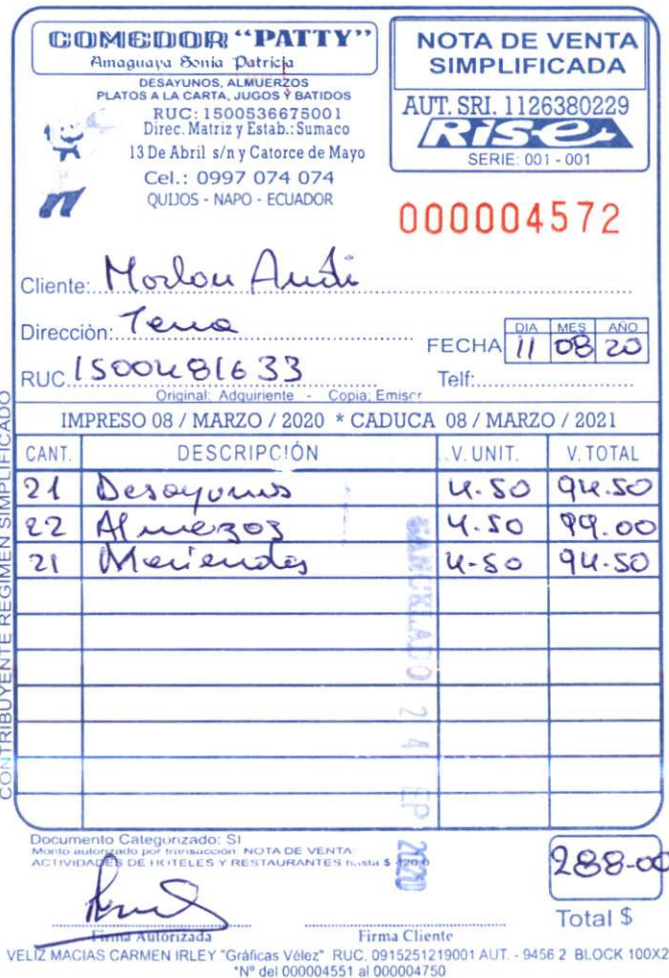 COMEDOR "PATTY"
Amaguaya Sonia Patricia
DESAYUNOS, ALMUERZOS
PLATOS A LA CARTA, JUGOS Y BATIDOS
RUC: 1500536675001
Direc. Matriz y Estab.: Sumaco
13 De Abril s/n y Catorce de Mayo
Cel.: 0997 074 074
QUIJOS - NAPO - ECUADOR
NOTA DE VENTA
SIMPLIFICADA
AUT. SRI. 1126380229
RISE
SERIE: 001 - 001
000004572
Cliente: Morlon Andi
Dirección: Tena
FECHA DIA MES AÑO
11 08 20
RUC. 1500481633 Telf:
Original: Adquiriente - Copia; Emisor
IMPRESO 08 / MARZO / 2020 * CADUCA 08 / MARZO / 2021
CANT. DESCRIPCIÓN V. UNIT. V. TOTAL
21 Desayunos 4.50 94.50
22 Almerzos 4.50 99.00
21 Meriendas 4-50 94-50
CANCELADO 24 EP 2020
CONTRIBUYENTE REGIMEN SIMPLIFICADO
Documento Categorizado: SI
Monto autorizado por transacción: NOTA DE VENTA:
ACTIVIDADES DE HOTELES Y RESTAURANTES hasta $
288-00
Total $
Firma Autorizada Firma Cliente
VELIZ MACIAS CARMEN IRLEY "Gráficas Vélez" RUC. 0915251219001 AUT. - 9456 2 BLOCK 100X2
"Nº del 000004551 al 000004750